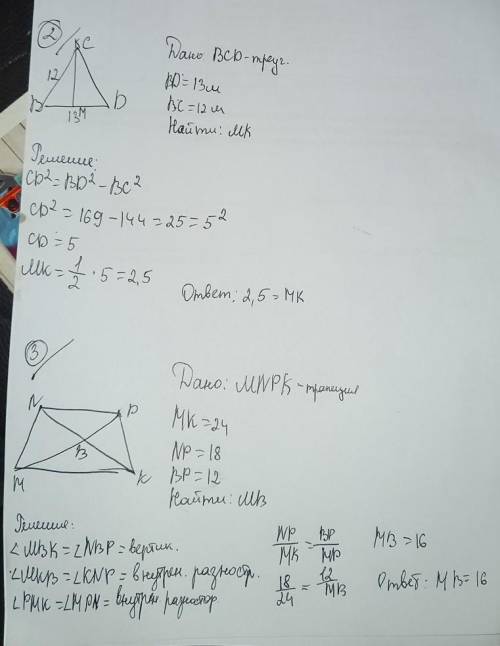 2
KC
12
B
D
13 M
Дано BCD-треуг.
BD=13м
BC=12м
Найти: MK
Решение:
CD²=BD²-BC²
CD²=169-144=25=5²
CD=5
MK=1/2·5=2,5
Ответ: 2,5=MK
3
N
P
B
M
K
Дано: MNPK-трапеция
MK=24
NP=18
BP=12
Найти: MB
Решение:
∠MBK=∠NBP=вертик.
∠MKB=∠KNP=внутрен. разностр.
∠PMK=∠MPN=внутрен разностор
NP/MK=BP/MP
18/24=12/MB
MB=16
Ответ: MB=16